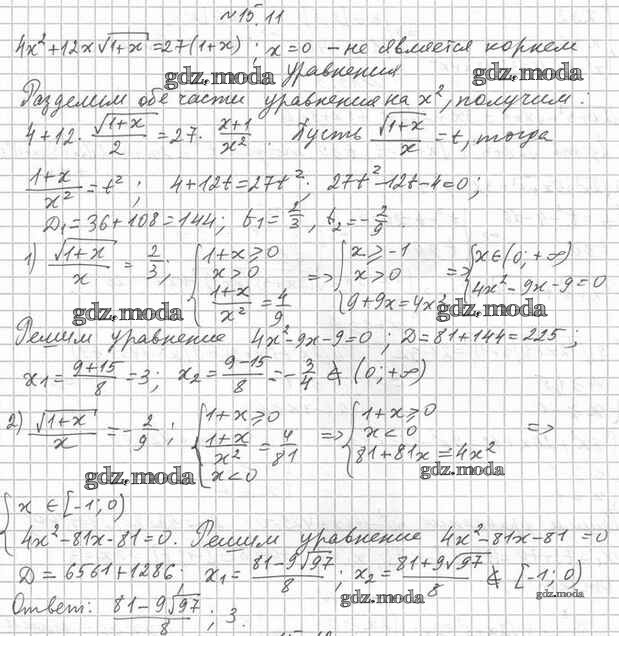 №15.11
4x²+12x√(1+x)=27(1+x) ; x=0 – не является корнем
уравнения
gdz.moda gdz.moda
Разделим обе части уравнения на x², получим:
4+12·√(1+x)/2=27·(x+1)/x². Пусть √(1+x)/x=t, тогда
(1+x)/x²=t²; 4+12t=27t²; 27t²-12t-4=0;
D₁=36+108=144; t₁=2/3, t₂=-2/9.
1) √(1+x)/x=2/3; {1+x⩾0 x>0 (1+x)/x²=4/9 => {x⩾-1 x>0 9+9x=4x² => {x∈(0;+∞) 4x²-9x-9=0
gdz.moda gdz.moda
Решим уравнение 4x²-9x-9=0; D=81+144=225;
x₁=(9+15)/8=3; x₂=(9-15)/8=-3/4 ∉ (0;+∞)
2) √(1+x)/x=-2/9; {1+x⩾0 (1+x)/x²=4/81 x<0 => {1+x⩾0 x<0 81+81x=4x² =>
gdz.moda gdz.moda
{x∈[-1;0)
4x²-81x-81=0. Решим уравнение 4x²-81x-81=0
D=6561+1286; x₁=(81-9√97)/8; x₂=(81+9√97)/8 ∉ [-1;0)
gdz.moda gdz.moda
Ответ: (81-9√97)/8; 3.